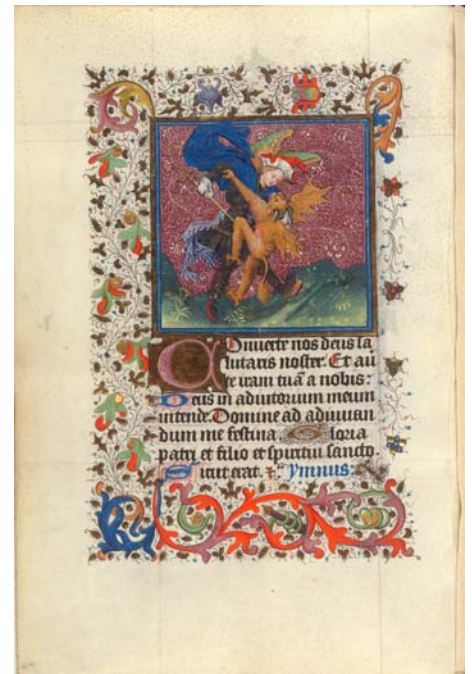 Onuerte nos deus sa
lutaris noster. Et auer
te iram tuã a nobis:
Deus in adiutorium meum
intende. Domine ad adiuuan
dum me festina. Gloria
patri et filio et spiritui sancto.
Sicut erat. ymnus: